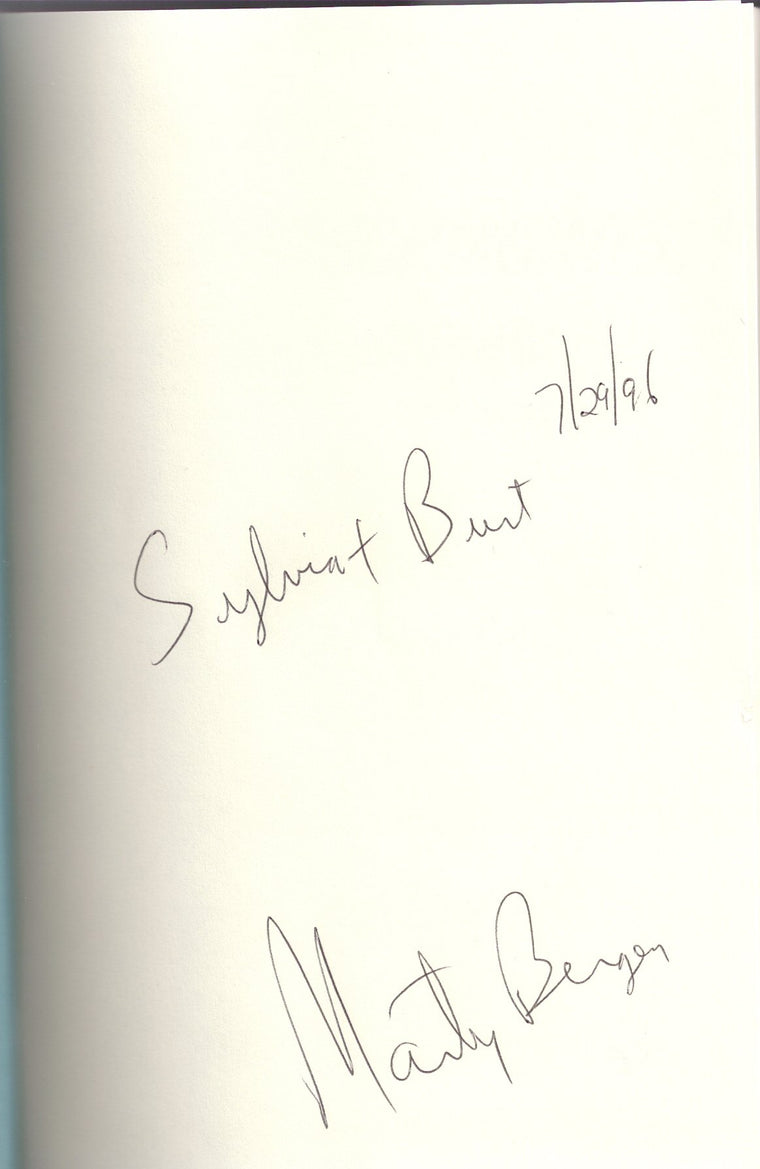 7/29/96
Sylvia + Burt
Marty Bergen